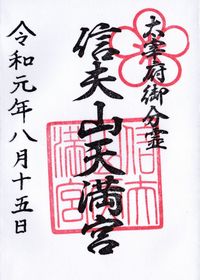 太宰府御分霊
信夫山天満宮
令和元年八月十五日
信夫
満宮